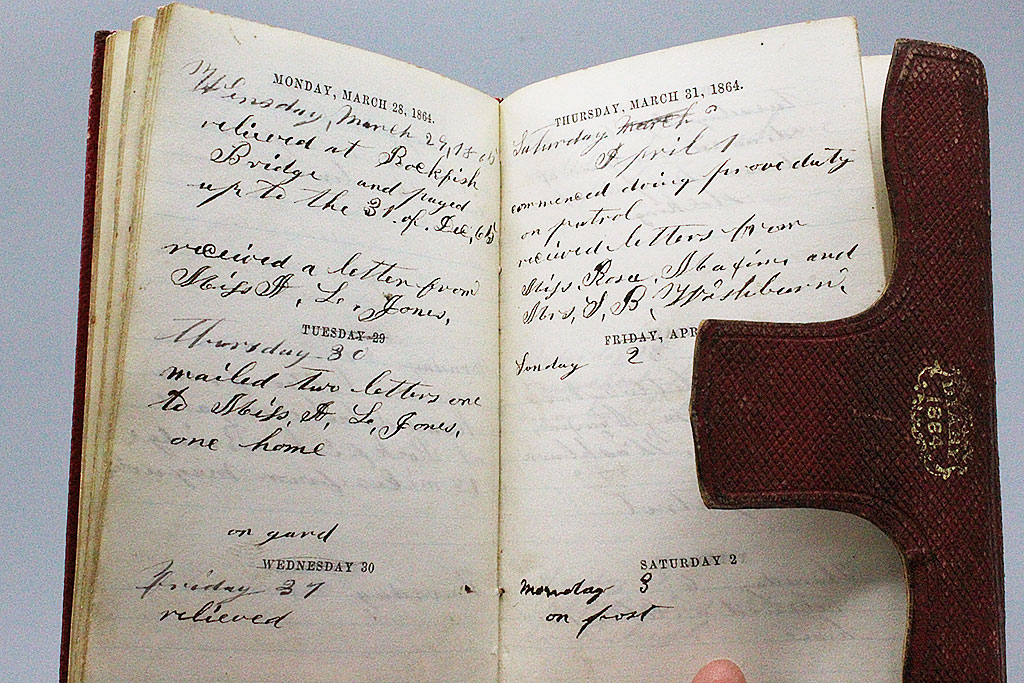 MONDAY, MARCH 28, 1864.
Wensday, March 29, 1865
relieved at Rockfish
Bridge and payed
up to the 31 of Dec, 65
received a letter from
Miss A, L, Jones,
TUESDAY 29
Thursday 30
mailed two letters one
to Miss, A, L, Jones,
one home
on gard
WEDNESDAY 30
Friday 31
relieved
THURSDAY, MARCH 31, 1864.
Saturday March
April 1
commenced doing prove duty
on patrol
received letters from
Miss, Rosa, and
Mrs, S, B, Wishburn,
FRIDAY, APR
Sonday 2
SATURDAY 2
Monday 3
on post
DIARY
1864